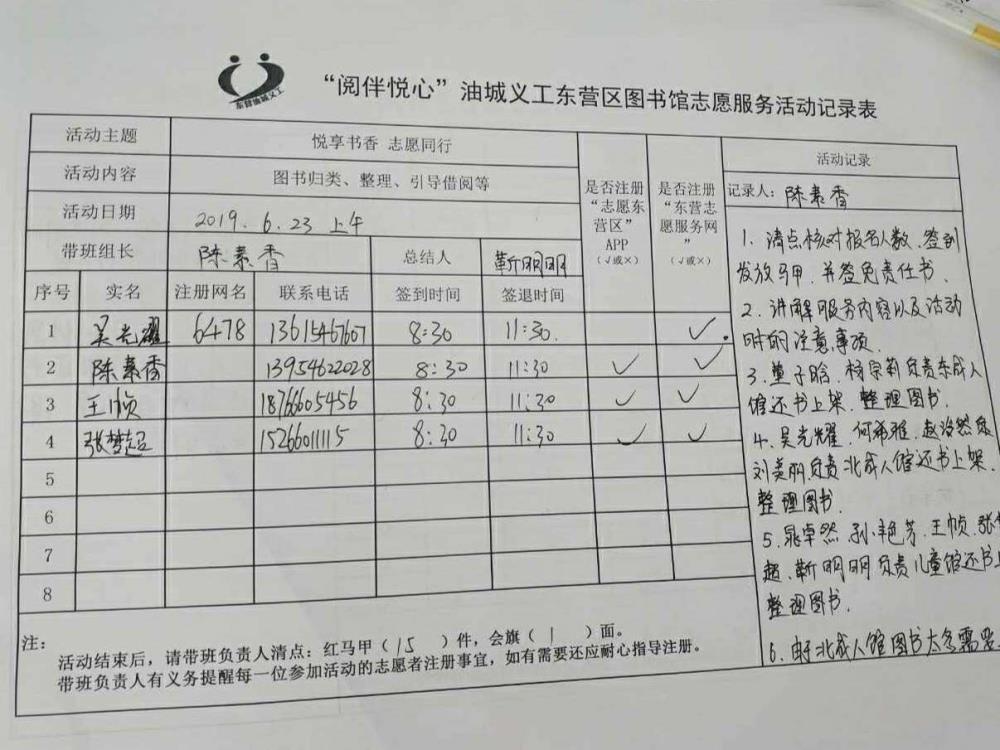 东营油城义工
“阅伴悦心”油城义工东营区图书馆志愿服务活动记录表
活动主题 悦享书香 志愿同行
活动内容 图书归类、整理、引导借阅等
活动日期 2019.6.23 上午
带班组长 陈素香 总结人 靳明明
是否注册“志愿东营区”APP（√或×）
是否注册“东营志愿服务网”（√或×）
序号 实名 注册网名 联系电话 签到时间 签退时间
1 吴光耀 6478 13615467607 8:30 11:30. ✓
2 陈素香 13954622028 8:30 11:30 ✓ ✓
3 王帧 18766605456 8:30 11:30 ✓ ✓
4 张梦超 15266011115 8:30 11:30 ✓ ✓
5
6
7
8
活动记录
记录人：陈素香
1. 清点核对报名人数、签到
发放马甲、并签免责任书.
2. 讲解服务内容以及活动
时的注意事项.
3. 董子晗、杨宗莉负责东成人
馆还书上架、整理图书.
4. 吴光耀、何希雅、赵浩然
刘美丽负责北成人馆还书上架、
整理图书.
5. 晁卓然、孙艳芳、王帧、张
超、靳明明负责儿童馆还书上
整理图书.
6. 由于北成人馆图书太多需要
注：
活动结束后，请带班负责人清点：红马甲（15）件，会旗（1）面。
带班负责人有义务提醒每一位参加活动的志愿者注册事宜，如有需要还应耐心指导注册。